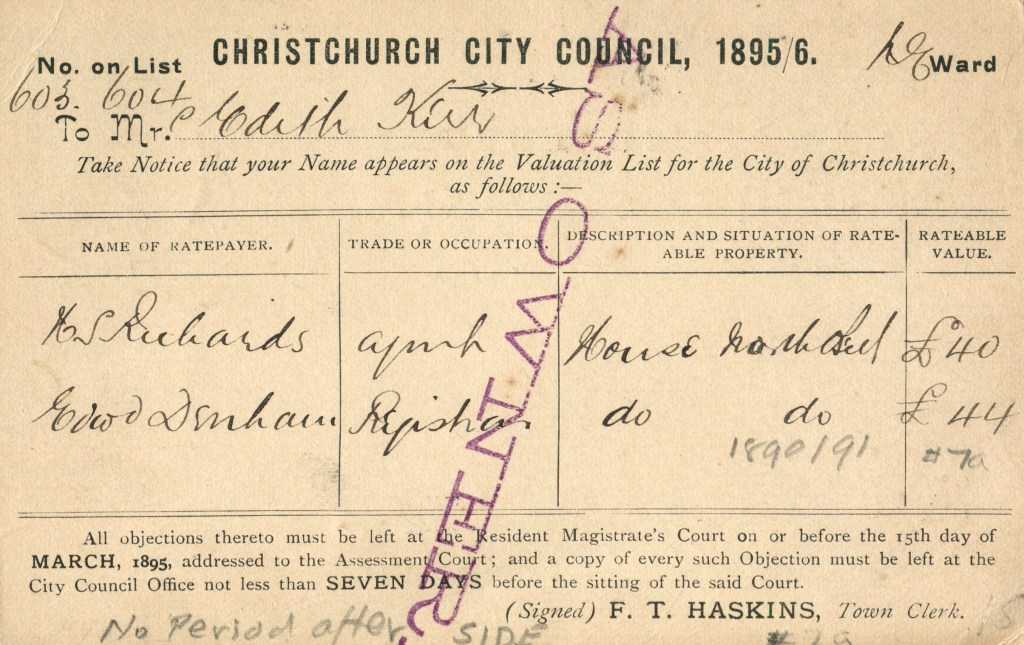 No. on List CHRISTCHURCH CITY COUNCIL, 1895/6. Ward
603. 604
To Mrs Edith Kerr
Take Notice that your Name appears on the Valuation List for the City of Christchurch,
as follows :—
NAME OF RATEPAYER. TRADE OR OCCUPATION. DESCRIPTION AND SITUATION OF RATE-ABLE PROPERTY. RATEABLE VALUE.
H S Richards agent House North Belt £40
Edwd Denham Registrar do do £44
1890/91 #7a
AS OWNER
All objections thereto must be left at the Resident Magistrate's Court on or before the 15th day of
MARCH, 1895, addressed to the Assessment Court; and a copy of every such Objection must be left at the
City Council Office not less than SEVEN DAYS before the sitting of the said Court.
(Signed) F. T. HASKINS, Town Clerk.
No Period after SIDE #7a